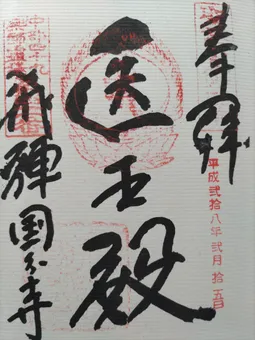 奉拝
平成弐拾八年弐月拾五日
医王殿
飛騨国分寺